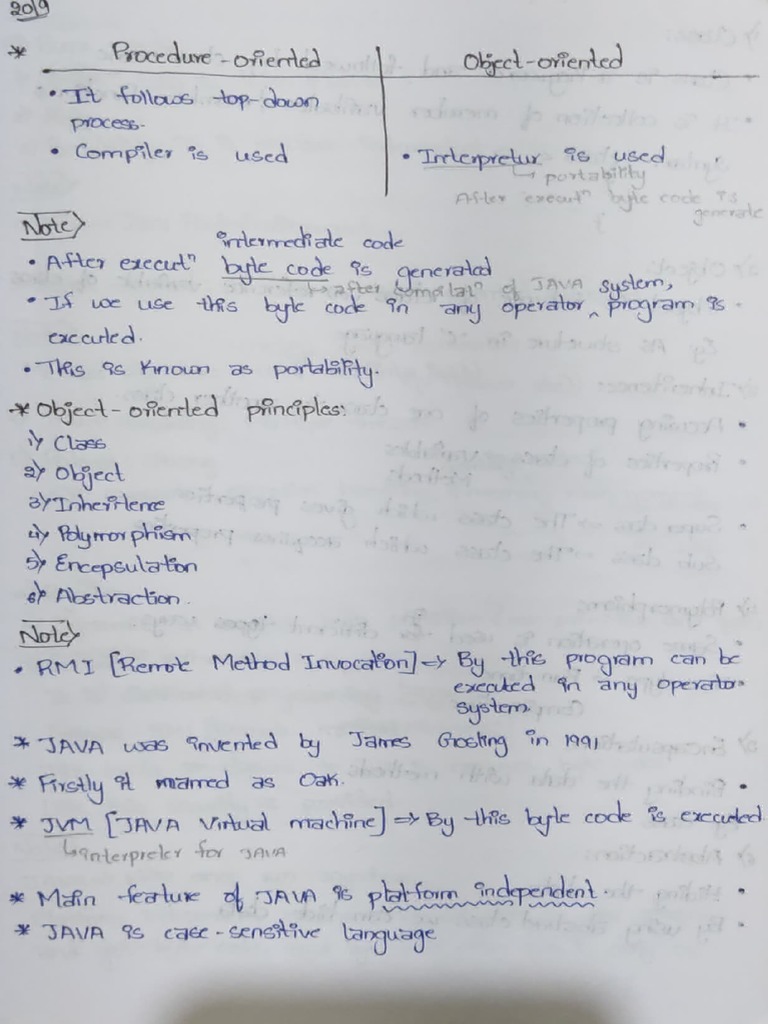 2019
* Procedure-oriented Object-oriented
• It follows top-down
process.
• Compiler is used • Interpretur is used
↳ portability
After executⁿ byte code is
generate
Note
intermediate code
• After executⁿ byte code is generated
↳ after compilatⁿ of JAVA system,
• If we use this byte code in any operator ^ program is
executed.
• This is known as portability.
* Object-oriented principles:
1) Class
2) Object
3) Inheritence
4) Polymorphism
5) Encepsulation
6) Abstraction.
Note
• RMI [Remote Method Invocation] => By this program can be
executed in any operator
system.
* JAVA was invented by James Gosling in 1991
* Firstly it mamed as Oak.
* JVM [JAVA Virtual machine] => By this byte code is executed.
↳ interpreter for JAVA
* Main feature of JAVA is platform independent.
* JAVA is case-sensitive language